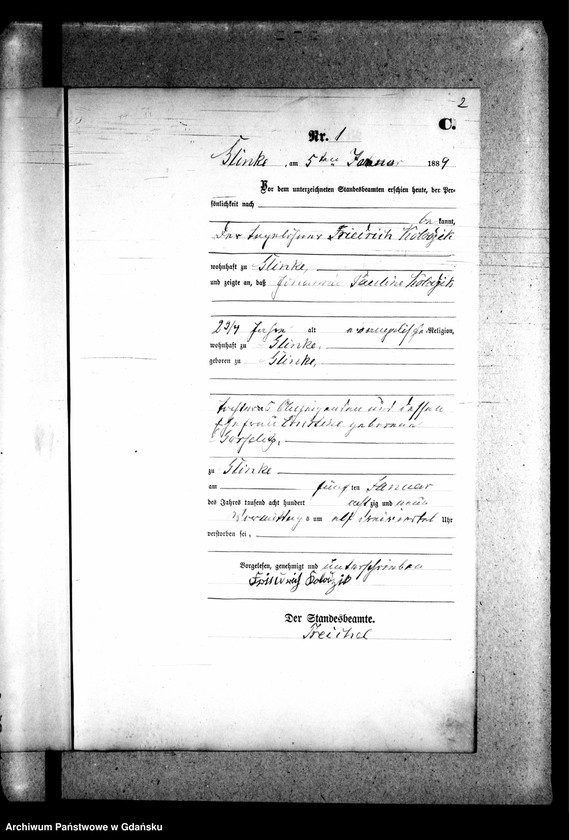 2
C.
Nr. 1
Glinke, am 5ten Januar 1889
Vor dem unterzeichneten Standesbeamten erschien heute, der Per-
sönlichkeit nach
be kannt,
der Tagelöhner Friedrich Kolodzik
wohnhaft zu Glinke,
und zeigte an, daß Pauline Kolodzik
2 3/4 Jahre alt evangelischer Religion,
wohnhaft zu Glinke,
geboren zu Glinke,
Tochter des Anzeigenden und dessen
Ehefrau geborene
zu Glinke
am fünften Januar
des Jahres tausend acht hundert achtzig und neun
Vormittags um elf dreiviertel Uhr
verstorben sei,
Vorgelesen, genehmigt und unterschrieben
Friedrich
Der Standesbeamte.
Treichel
Archiwum Państwowe w Gdańsku